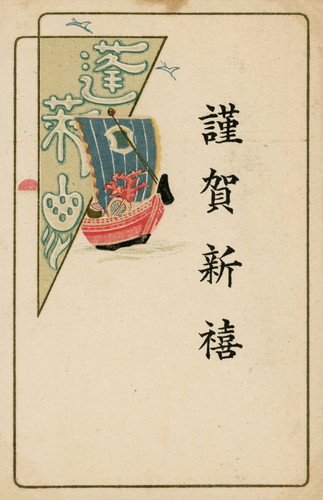 謹賀新禧
蓬莱山